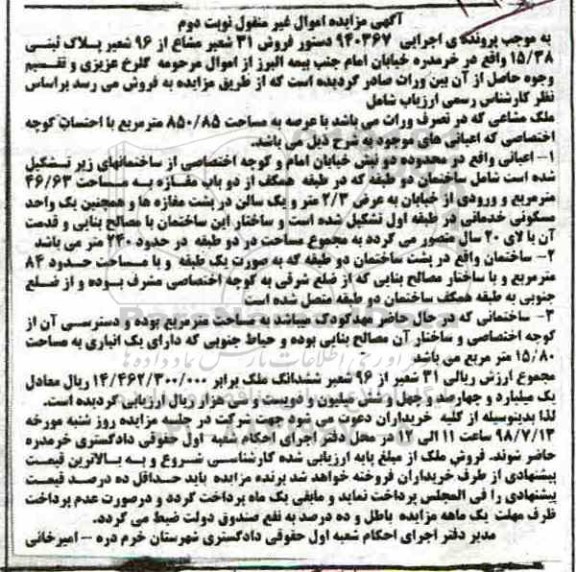 آگهی مزایده اموال غیر منقول نوبت دوم
به موجب پرونده ی اجرایی ۹۴۰۳۶۷ دستور فروش ۳۱ شعیر مشاع از ۹۶ شعیر پلاک ثبتی
۱۵/۳۸ واقع در خرمدره خیابان امام جنب بیمه البرز از اموال مرحومه گلرخ عزیزی و تقسیم
وجوه حاصل از آن بین وراث صادر گردیده است که از طریق مزایده به فروش می رسد براساس
نظر کارشناس رسمی ارزیاب شامل
ملک مشاعی که در تصرف وراث می باشد با عرصه به مساحت ۸۵۰/۸۵ مترمربع با احتساب کوچه
اختصاصی که اعیانی های موجود به شرح ذیل می باشد.
۱- اعیانی واقع در محدوده دو نبش خیابان امام و کوچه اختصاصی از ساختمانهای زیر تشکیل
شده است شامل ساختمان دو طبقه که در طبقه همکف از دو باب مغازه به مساحت ۴۶/۶۳
مترمربع و ورودی از خیابان به عرض ۲/۳ متر و یک سالن در پشت مغازه ها و همچنین یک واحد
مسکونی خدماتی در طبقه اول تشکیل شده است و ساختار این ساختمان با مصالح بنایی و قدمت
آن بالای ۲۰ سال متصور می گردد به مجموع مساحت در دو طبقه در حدود ۲۴۰ متر می باشد
۲- ساختمان واقع در پشت ساختمان دو طبقه که به صورت یک طبقه و با مساحت حدود ۸۴
مترمربع و با ساختار مصالح بنایی که از ضلع شرقی به کوچه اختصاصی مشرف بوده و از ضلع
جنوبی به طبقه همکف ساختمان دو طبقه متصل شده است
۳- ساختمانی که در حال حاضر مهدکودک میباشد به مساحت مترمربع بوده و دسترسی آن از
کوچه اختصاصی و ساختار آن مصالح بنایی بوده و حیاط جنوبی که دارای یک انباری به مساحت
۱۵/۸۰ متر مربع می باشد
مجموع ارزش ریالی ۳۱ شعیر از ۹۶ شعیر ششدانگ ملک برابر ۱۴/۴۶۲/۳۰۰/۰۰۰ ریال معادل
یک میلیارد و چهارصد و چهل و شش میلیون و دویست و سی هزار ریال ارزیابی گردیده است.
لذا بدینوسیله از کلیه خریداران دعوت می شود جهت شرکت در جلسه مزایده روز شنبه مورخه
۹۸/۷/۱۳ ساعت ۱۱ الی ۱۲ در محل دفتر اجرای احکام شعبه اول حقوقی دادگستری خرمدره
حاضر شوند. فروش ملک از مبلغ پایه ارزیابی شده کارشناسی شروع و به بالاترین قیمت
پیشنهادی از طرف خریداران فروخته خواهد شد برنده مزایده باید حداقل ده درصد قیمت
پیشنهادی را فی المجلس پرداخت نماید و مابقی یک ماه پرداخت گردد و درصورت عدم پرداخت
ظرف مهلت یک ماهه مزایده باطل و ده درصد به نفع صندوق دولت ضبط می گردد.
مدیر دفتر اجرای احکام شعبه اول حقوقی دادگستری شهرستان خرم دره – امیرخانی